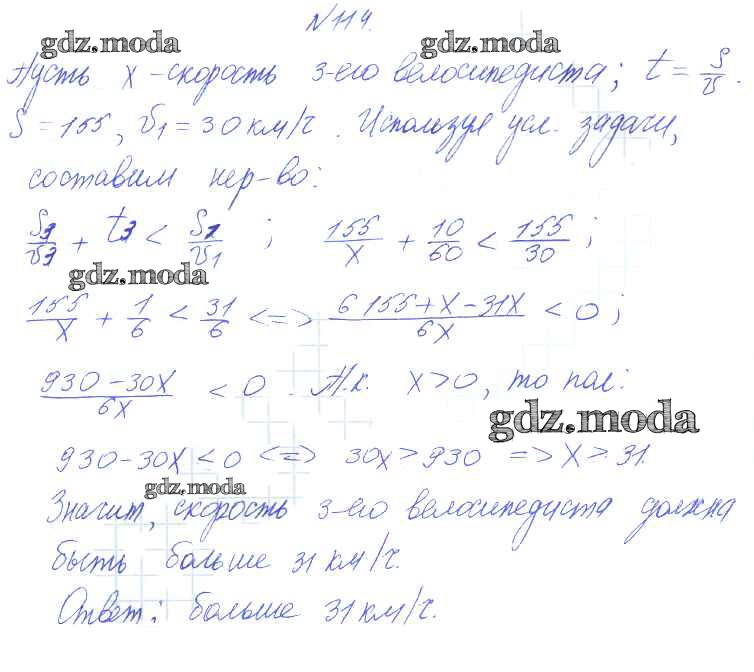 N 114.
gdz.moda gdz.moda
Пусть x - скорость 3-его велосипедиста; t = S/v.
S = 155, v₁ = 30 км/ч. Используя усл. задачи,
составим нер-во:
S₃/v₃ + t₃ < S₁/v₁ ; 155/x + 10/60 < 155/30 ;
gdz.moda
155/x + 1/6 < 31/6 <=> (6·155 + x - 31x)/6x < 0 ;
(930 - 30x)/6x < 0. Т.к. x > 0, то пол:
gdz.moda
930 - 30x < 0 <=> 30x > 930 => x > 31.
gdz.moda
Значит, скорость 3-его велосипедиста должна
быть больше 31 км/ч.
Ответ: больше 31 км/ч.